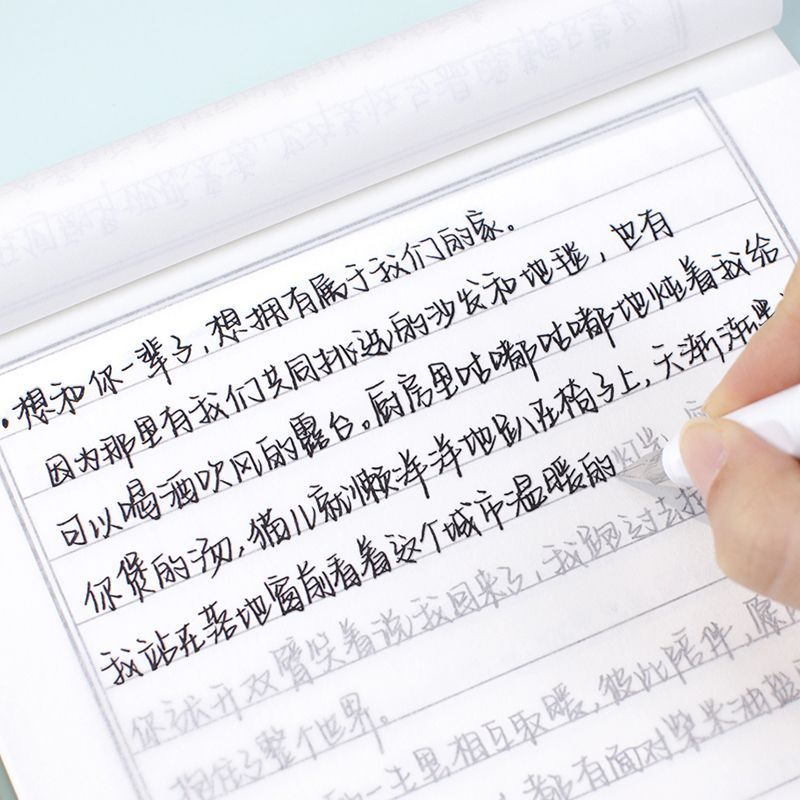 •想和你一辈子,想拥有属于我们的家。
因为那里有我们共同挑选的沙发和地毯,也有
可以喝酒吹风的露台。厨房里咕嘟咕嘟地炖着我给
你煲的汤,猫儿就懒洋洋地趴在椅子上,天渐渐黑
我站在落地窗前看着这个城市温暖的灯光,
你张开双臂笑着说我回来了,我跑过去
拥住了整个世界。
的一生里相互取暖,彼此陪伴,愿
都有面对柴米油盐